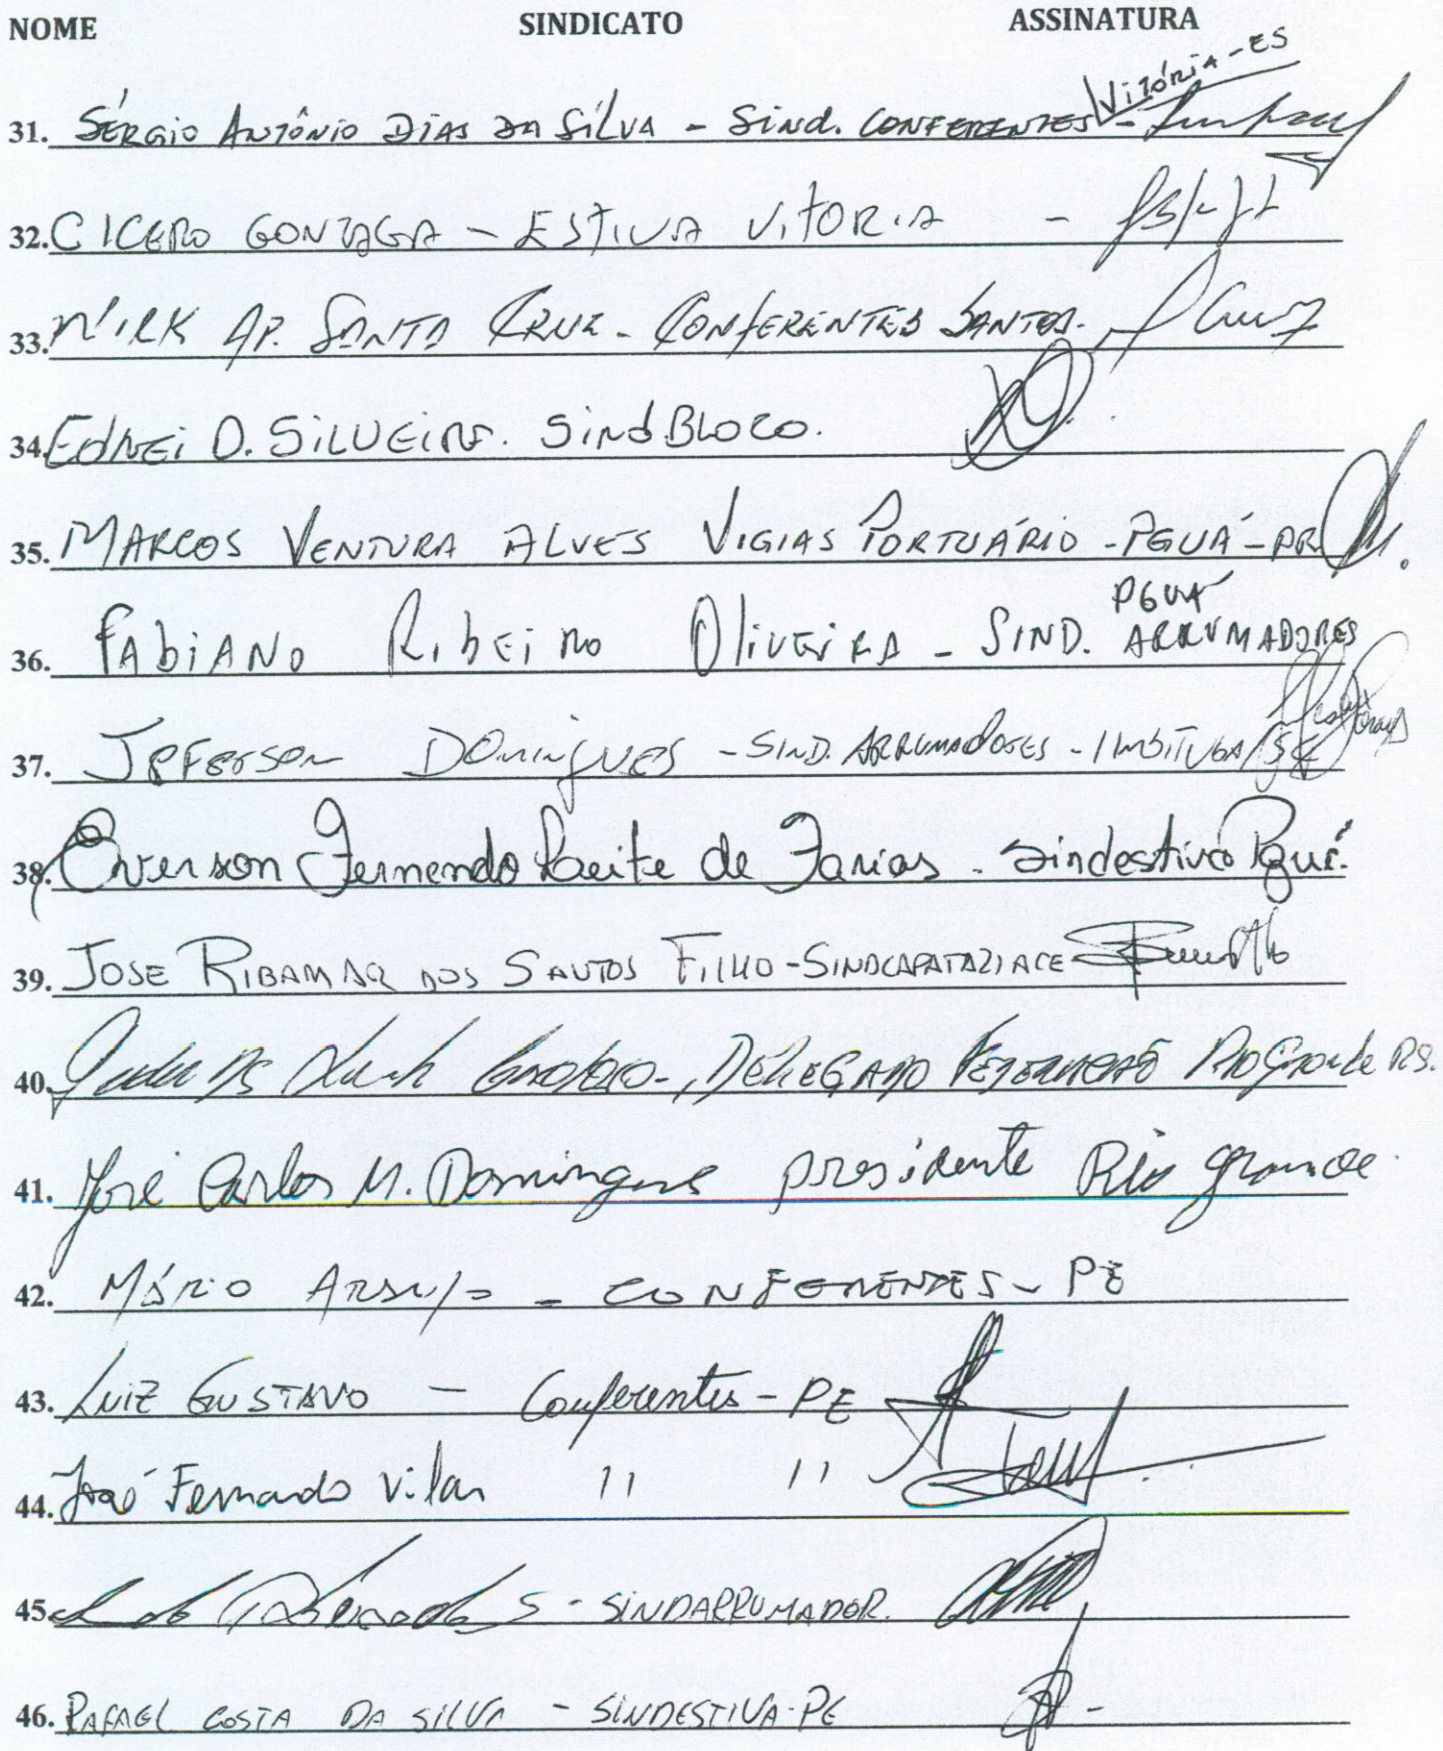 NOME SINDICATO ASSINATURA
Vitória-ES
31. Sérgio Antônio Dias da Silva - Sind. Conferentes
32. CICERO GONZAGA - ESTIVA VITORIA -
33. AP. SANTA CRUZ - CONFERENTES SANTOS.
34. Ednei D. Silveira. SindBloco.
35. MARCOS VENTURA ALVES VIGIAS PORTUÁRIO - PGUÁ - PR
PGUÁ
36. FAbiANo Ribeiro OliveiRA - SIND. ARRUMADORES
37. Jeferson Domingues - SIND. ARRUMADORES - IMBITUBA/SC
38. Everson Fernando Leite de Farias - sindestiva Pguá.
39. JOSE RIBAMAR DOS SANTOS FILHO - SINDCAPATAZIACE
40. DELEGADO FEDERAÇÃO Rio Grande RS.
41. José Carlos M. Domingues presidente Rio grande.
42. MÁRIO ARAUJO - CONFERENTES - PE
43. LUIZ GUSTAVO - Conferentes - PE
44. José Fernando Vilar 11 11
45. S - SINDARRUMADOR.
46. RAFAEL COSTA DA SILVA - SINDESTIVA-PE